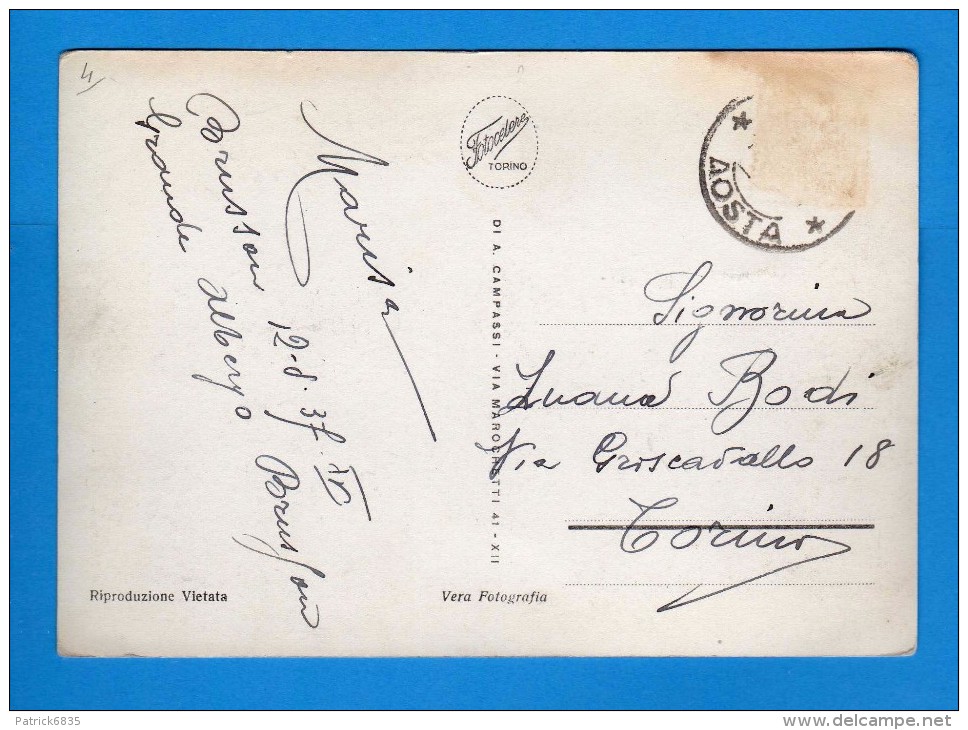 4
Brusson
Grande Albergo
Marisa
12-8-37-XV Brusson
Fotocelere
TORINO
DI A. CAMPASSI - VIA MAROCHETTI 41 - XII
AOSTA
Signorina
Luana Bodi
Via Groscavallo 18
Torino
Riproduzione Vietata
Vera Fotografia
Patrick6835
www.delcampe.net